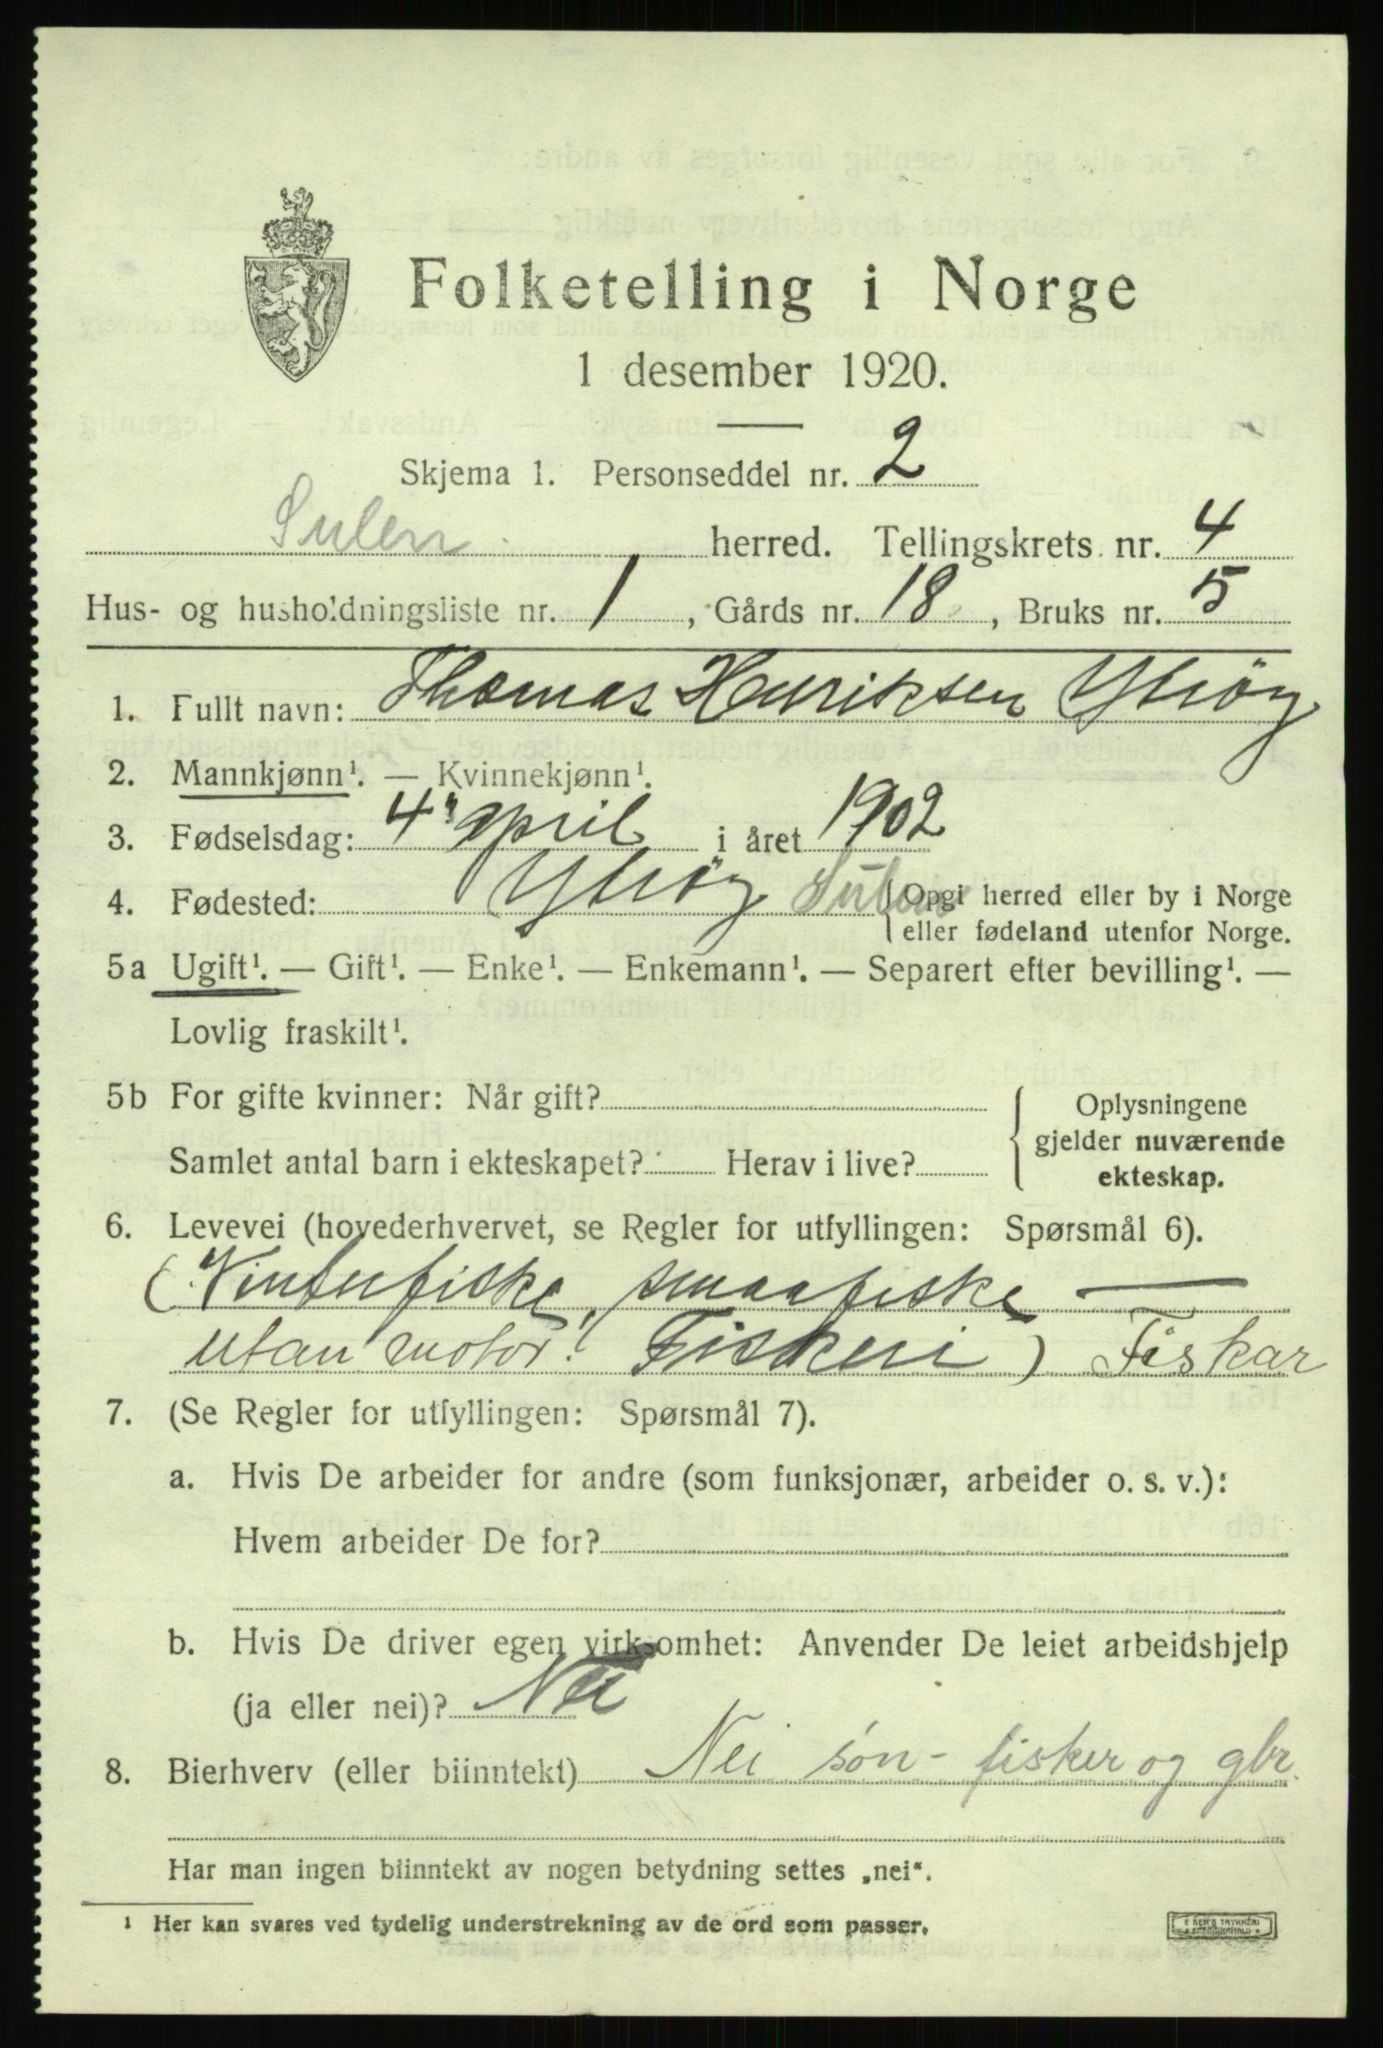 Folketelling i Norge
1 desember 1920.
Skjema 1. Personseddel nr. 2
Sulen herred. Tellingskrets nr. 4
Hus- og husholdningsliste nr. 1, Gårds nr. 18, Bruks nr. 5
1. Fullt navn: Thomas Henriksen Ytrøy
2. Mannkjønn¹. — Kvinnekjønn¹.
3. Fødselsdag: 4 april i året 1902
4. Fødested: Ytrøy Sulen {Opgi herred eller by i Norge
eller fødeland utenfor Norge.
5a Ugift¹. — Gift¹. — Enke¹. — Enkemann¹. — Separert efter bevilling¹. —
Lovlig fraskilt¹.
5b For gifte kvinner: Når gift? Oplysningene
gjelder nuværende
Samlet antal barn i ekteskapet? Herav i live? ekteskap.
6. Levevei (hovederhvervet, se Regler for utfyllingen: Spørsmål 6).
(Vinterfiske, smaafiske —
utan motor! Fiskeri) Fiskar
7. (Se Regler for utfyllingen: Spørsmål 7).
a. Hvis De arbeider for andre (som funksjonær, arbeider o. s. v.):
Hvem arbeider De for?
b. Hvis De driver egen virksomhet: Anvender De leiet arbeidshjelp
(ja eller nei)? Nei
8. Bierhverv (eller biinntekt) Nei søn - fisker og gbr.
Har man ingen biinntekt av nogen betydning settes „nei“.
¹ Her kan svares ved tydelig understrekning av de ord som passer.